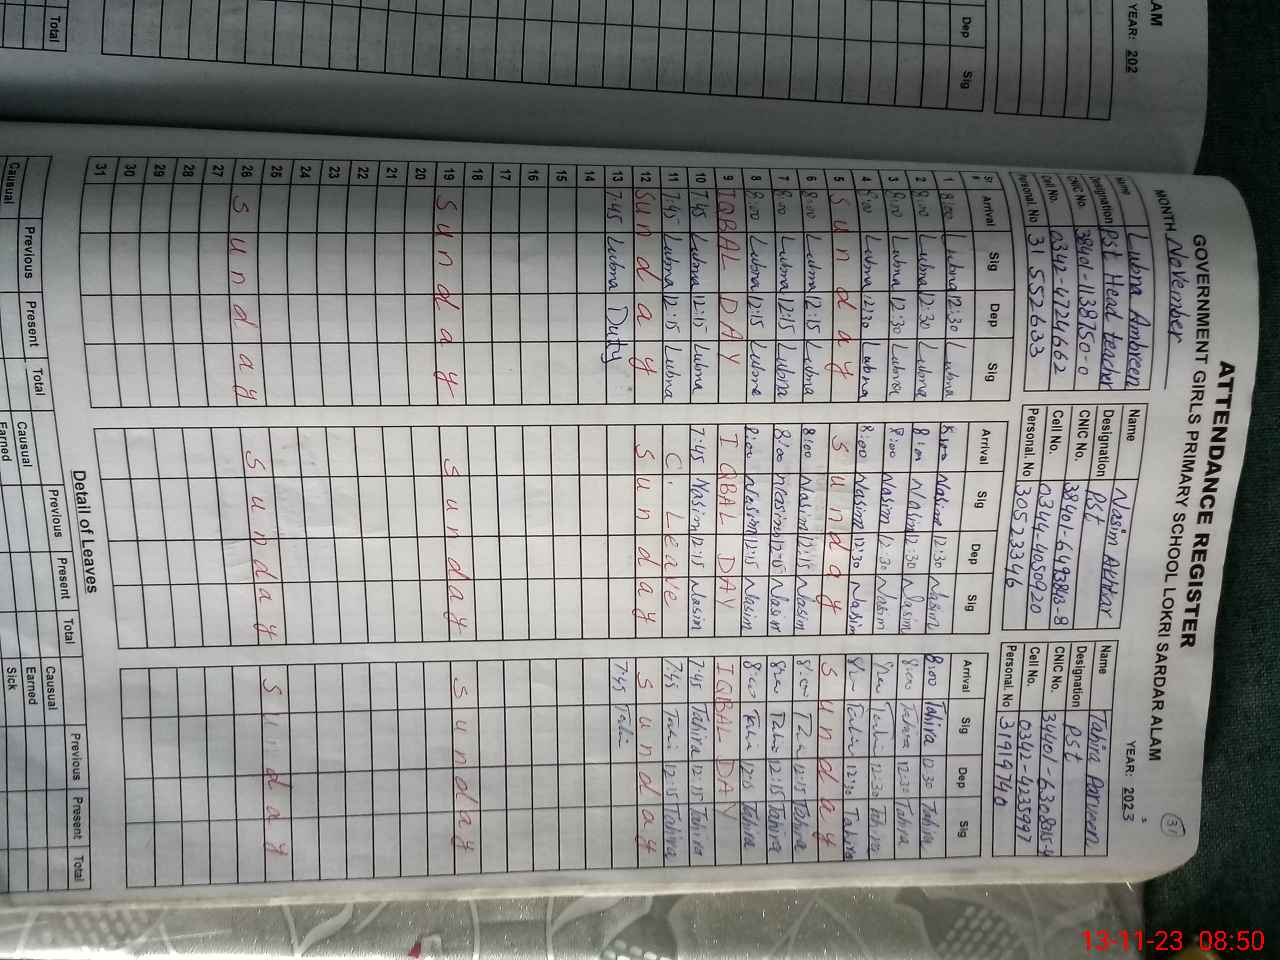 AM
YEAR: 202
Dep
Sig
Total
ATTENDANCE REGISTER
GOVERNMENT GIRLS PRIMARY SCHOOL LOKRI SARDAR ALAM
MONTH November
YEAR: 2023
31
Name Lubna Ambreen
Designation Pst Head teacher
CNIC No. 38401-1138750-0
Cell No. 0342-4724662
Personal. No 31552633
Name Nasim Akhtar
Designation Pst
CNIC No. 38401-6493843-8
Cell No. 0344-4050920
Personal. No 30523346
Name Tahira Parveen
Designation Pst
CNIC No.
Cell No. 0342-4235997
Personal. No 31919740
Sr # Arrival Sig Dep Sig Arrival Sig Dep Sig Arrival Sig Dep Sig
1 8:00 Lubna 12:30 Lubna 8:00 Nasim 12:30 Nasim 8:00 Tahira 12:30 Tahira
2 8:00 Lubna 12:30 Lubna 8:00 Nasim 12:30 Nasim 8:00 Tahira 12:30 Tahira
3 8:00 Lubna 12:30 Lubna 8:00 Nasim 12:30 Nasim 12:30 Tahira
4 8:00 Lubna 12:30 Lubna 8:00 Nasim 12:30 Nasim 12:30 Tahira
5 Sunday Sunday Sunday
6 8:00 Lubna 12:15 Lubna 8:00 Nasim 12:15 Nasim 8:00 12:15 Tahira
7 8:00 Lubna 12:15 Lubna 8:00 Nasim 12:15 Nasim 12:15 Tahira
8 8:00 Lubna 12:15 Lubna 8:00 Nasim 12:15 Nasim 8:00 12:15 Tahira
9 IQBAL DAY IQBAL DAY IQBAL DAY
10 7:45 Lubna 12:15 Lubna 7:45 Nasim 12:15 Nasim 7:45 Tahira 12:15 Tahira
11 7:45 Lubna 12:15 Lubna C. Leave 7:45 12:15 Tahira
12 Sunday Sunday Sunday
13 7:45 Lubna Duty 7:45
14
15
16
17
18
19 Sunday Sunday Sunday
20
21
22
23
24
25
26 Sunday Sunday Sunday
27
28
29
30
31
Detail of Leaves
Previous Present Total Previous Present Total Previous Present Total
Causual Causual Causual
Earned Earned
Sick
13-11-23 08:50